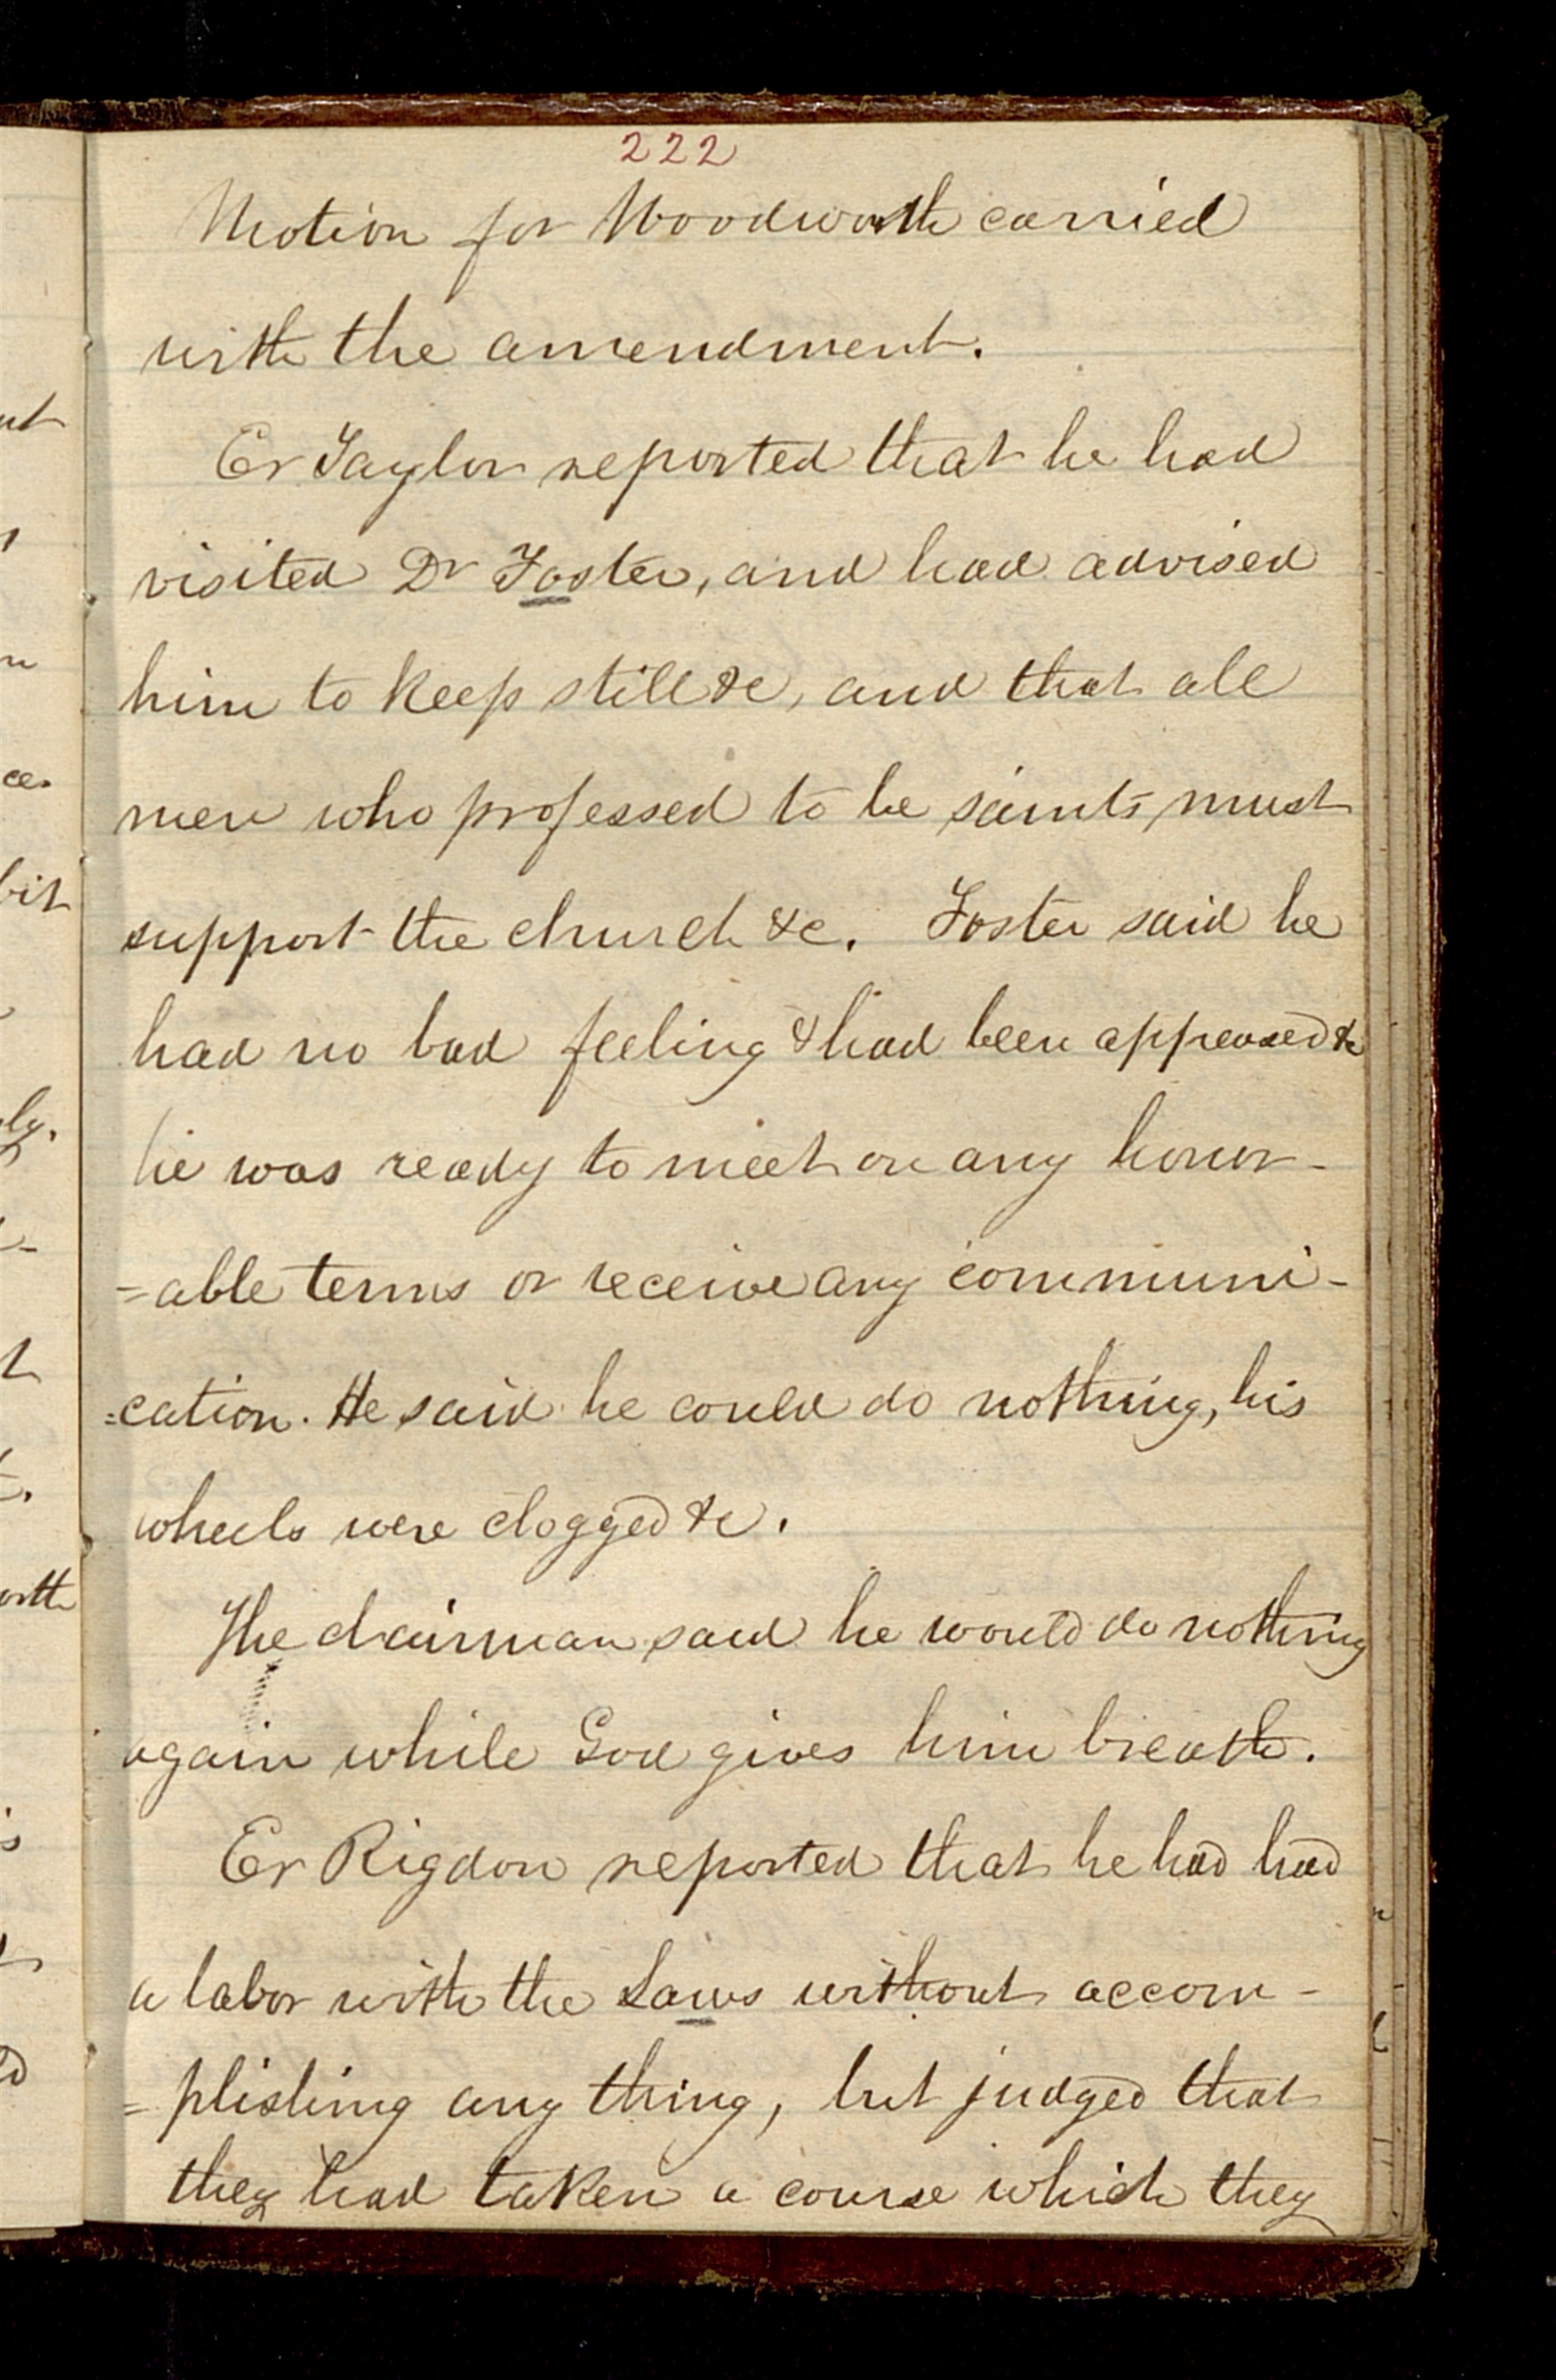 222
Motion for Woodworth carried
with the amendment.
Er Taylor reported that he had
visited Dr Foster, and had advised
him to keep still &c, and that all
men who professed to be saints must
support the church &c. Foster said he
had no bad feeling & had been appeased &c
he was ready to meet on any honor-
=able terms or receive any communi-
=cation. He said he could do nothing, his
wheels were clogged &c.
The chairman said he would do nothing
again while God gives him breath.
Er Rigdon reported that he had had
a labor with the Laws without accom-
=plishing any thing, but judged that
they had taken a course which they